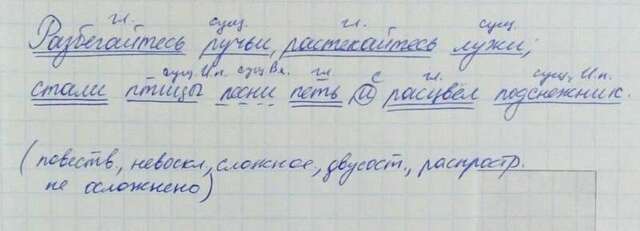 гл. сущ. гл. сущ.
Разбегайтесь ручьи, растекайтесь лужи;
сущ. И.п. сущ. Вп. гл. с гл. сущ., И.п.
стали птицы песни петь и расцвёл подснежник.
(повеств, невоскл, сложное, двусост., распростр.
не осложнено)